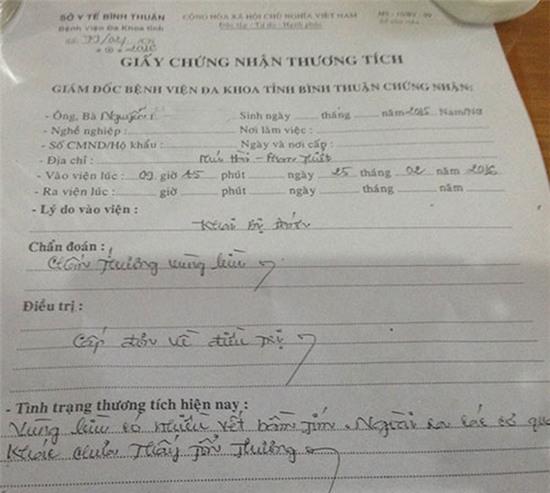 SỞ Y TẾ BÌNH THUẬN
CỘNG HÒA XÃ HỘI CHỦ NGHĨA VIỆT NAM
Bệnh viện Đa Khoa tỉnh
Độc lập - Tự do - Hạnh phúc
GIẤY CHỨNG NHẬN THƯƠNG TÍCH
GIÁM ĐỐC BỆNH VIỆN ĐA KHOA TỈNH BÌNH THUẬN CHỨNG NHẬN:
- Ông, Bà Nguyễn Sinh ngày tháng năm 2015 Nam/Nữ
- Nghề nghiệp : Nơi làm việc :
- Số CMND/Hộ khẩu : Ngày và nơi cấp :
- Địa chỉ : - Phan Thiết
- Vào viện lúc : 09 giờ 15 phút ngày 25 tháng 02 năm 2016
- Ra viện lúc : giờ phút ngày tháng năm
- Lý do vào viện :
Khai bị đánh
Chẩn đoán :
Chấn thương vùng
Điều trị :
Cấp đơn về điều trị
- Tình trạng thương tích hiện nay :
Vùng có nhiều vết bầm tím. Ngoài ra các cơ qu
khác chưa thấy tổn thương